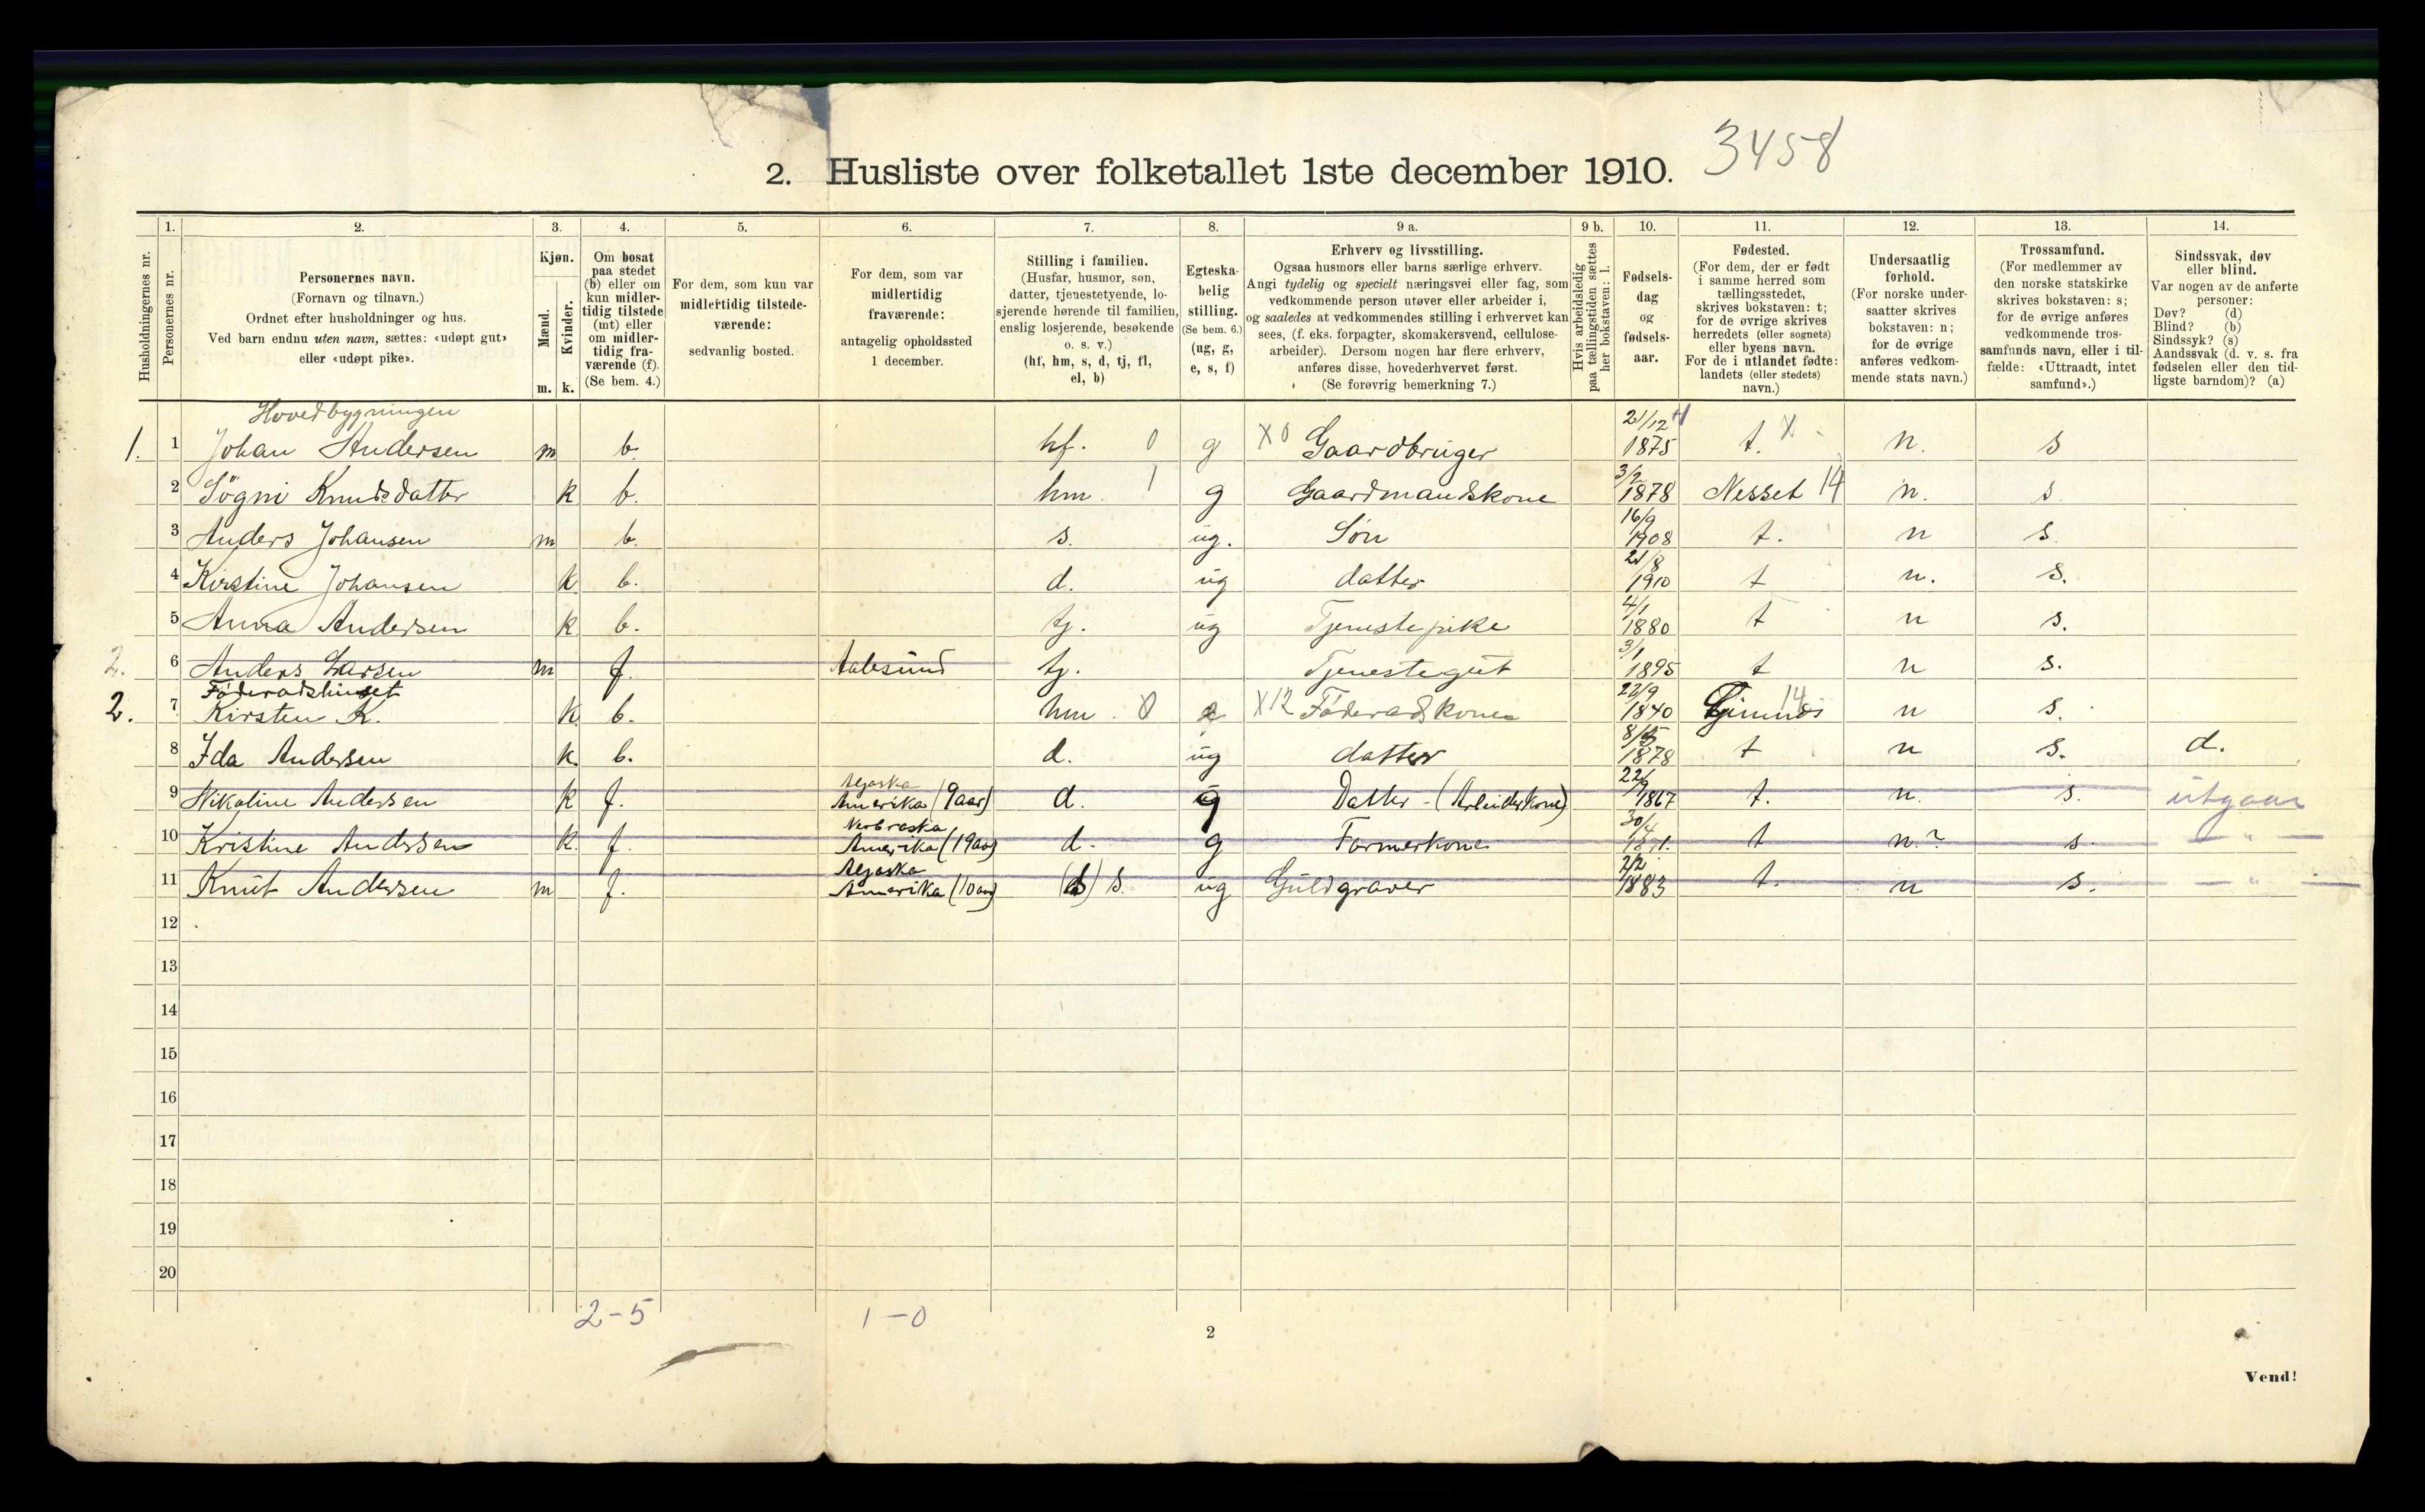 3458
2. Husliste over folketallet 1ste december 1910.
Husholdningernes nr.
1.
Personernes nr.
2.
Personernes navn.
(Fornavn og tilnavn.)
Ordnet efter husholdninger og hus.
Ved barn endnu uten navn, sættes: «udøpt gut»
eller «udøpt pike».
3.
Kjøn.
Mænd.
Kvinder.
m. k.
4.
Om bosat
paa stedet
(b) eller om
kun midler-
tidig tilstede
(mt) eller
om midler-
tidig fra-
værende (f).
(Se bem. 4.)
5.
For dem, som kun var
midlertidig tilstede-
værende:
sedvanlig bosted.
6.
For dem, som var
midlertidig
fraværende:
antagelig opholdssted
1 december.
7.
Stilling i familien.
(Husfar, husmor, søn,
datter, tjenestetyende, lo-
sjerende hørende til familien,
enslig losjerende, besøkende
o. s. v.)
(hf, hm, s, d, tj, fl,
el, b)
8.
Egteska-
belig
stilling.
(Se bem. 6.)
(ug, g,
e, s, f)
9 a.
Erhverv og livsstilling.
Ogsaa husmors eller barns særlige erhverv.
Angi tydelig og specielt næringsvei eller fag, som
vedkommende person utøver eller arbeider i,
og saaledes at vedkommendes stilling i erhvervet kan
sees, (f. eks. forpagter, skomakersvend, cellulose-
arbeider). Dersom nogen har flere erhverv,
anføres disse, hovederhvervet først.
(Se forøvrig bemerkning 7.)
9 b.
Hvis arbeidsledig
paa tællingstiden sættes
her bokstaven: l.
10.
Fødsels-
dag
og
fødsels-
aar.
11.
Fødested.
(For dem, der er født
i samme herred som
tællingsstedet,
skrives bokstaven: t;
for de øvrige skrives
herredets (eller sognets)
eller byens navn.
For de i utlandet fødte:
landets (eller stedets)
navn.)
12.
Undersaatlig
forhold.
(For norske under-
saatter skrives
bokstaven: n;
for de øvrige
anføres vedkom-
mende stats navn.)
13.
Trossamfund.
(For medlemmer av
den norske statskirke
skrives bokstaven: s;
for de øvrige anføres
vedkommende tros-
samfunds navn, eller i til-
fælde: «Uttraadt, intet
samfund».)
14.
Sindssvak, døv
eller blind.
Var nogen av de anførte
personer:
Døv? (d)
Blind? (b)
Sindssyk? (s)
Aandssvak (d. v. s. fra
fødselen eller den tid-
ligste barndom)? (a)
Hovedbygningen
1. 1 Johan Andersen m b. hf. 0 g X0 Gaardbruger 21/12 1875 t. X n. s
2 Sögni Knudsdatter k b. hm. 1 g Gaardmandskone 3/2 1878 Nesset 14 n. s
3 Anders Johansen m b. s. ug. Søn 16/9 1908 t. n s.
4 Kirstine Johansen k b. d. ug datter 21/8 1910 t n. s.
5 Anna Andersen k b. tj. ug Tjenestepike 4/1 1880 t n s.
2. 6 Anders Larsen m f. Aalesund tj. Tjenestegut 3/1 1895 t n s.
Föderadshuset
2. 7 Kirsten K. k b. hm. 0 X12 Föderadskone 22/9 1840 14 n s.
8 Ida Andersen k. b. d. ug datter 1878 t n s. d.
9 Nikoline Andersen k f. Aljaska Amerika (9aar) d. g Datter - (Arbeiderkone) 22/9 1867 t. n. s. utgaar
10 Kristine Andersen k. f. Nerbraska Amerika (19aar) d. g Farmerkone 30/4 1871. t n.? s. — " —
11 Knut Andersen m f. Aljaska Amerika (10aar) s. ug Guldgraver 2/2 1883 t. n s. — " —
12
13
14
15
16
17
18
19
20
2-5 1-0
2
Vend!